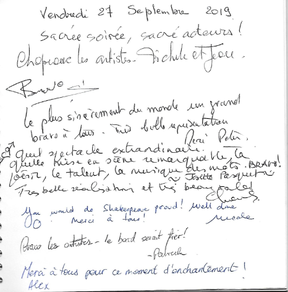 Vendredi 27 Septembre 2019
Sacrée soirée, sacré acteurs !
Chapeau les artistes. Michèle et Jean
Bravo
Le plus sincèrement du monde un grand
bravo à tous. Très belle représentation
Quel spectacle extraordinaire.
Quelle mise en scène remarquable, la
poésie, le talent, la musique des mots. BRAVO!
Très belle réalisation et très beau
You would do Shakespeare proud! Well done
Merci à tous! Nicole
Bravo les artistes - le bord serait fier!
- Patrick
Merci à tous pour ce moment d'enchantement !
Alex